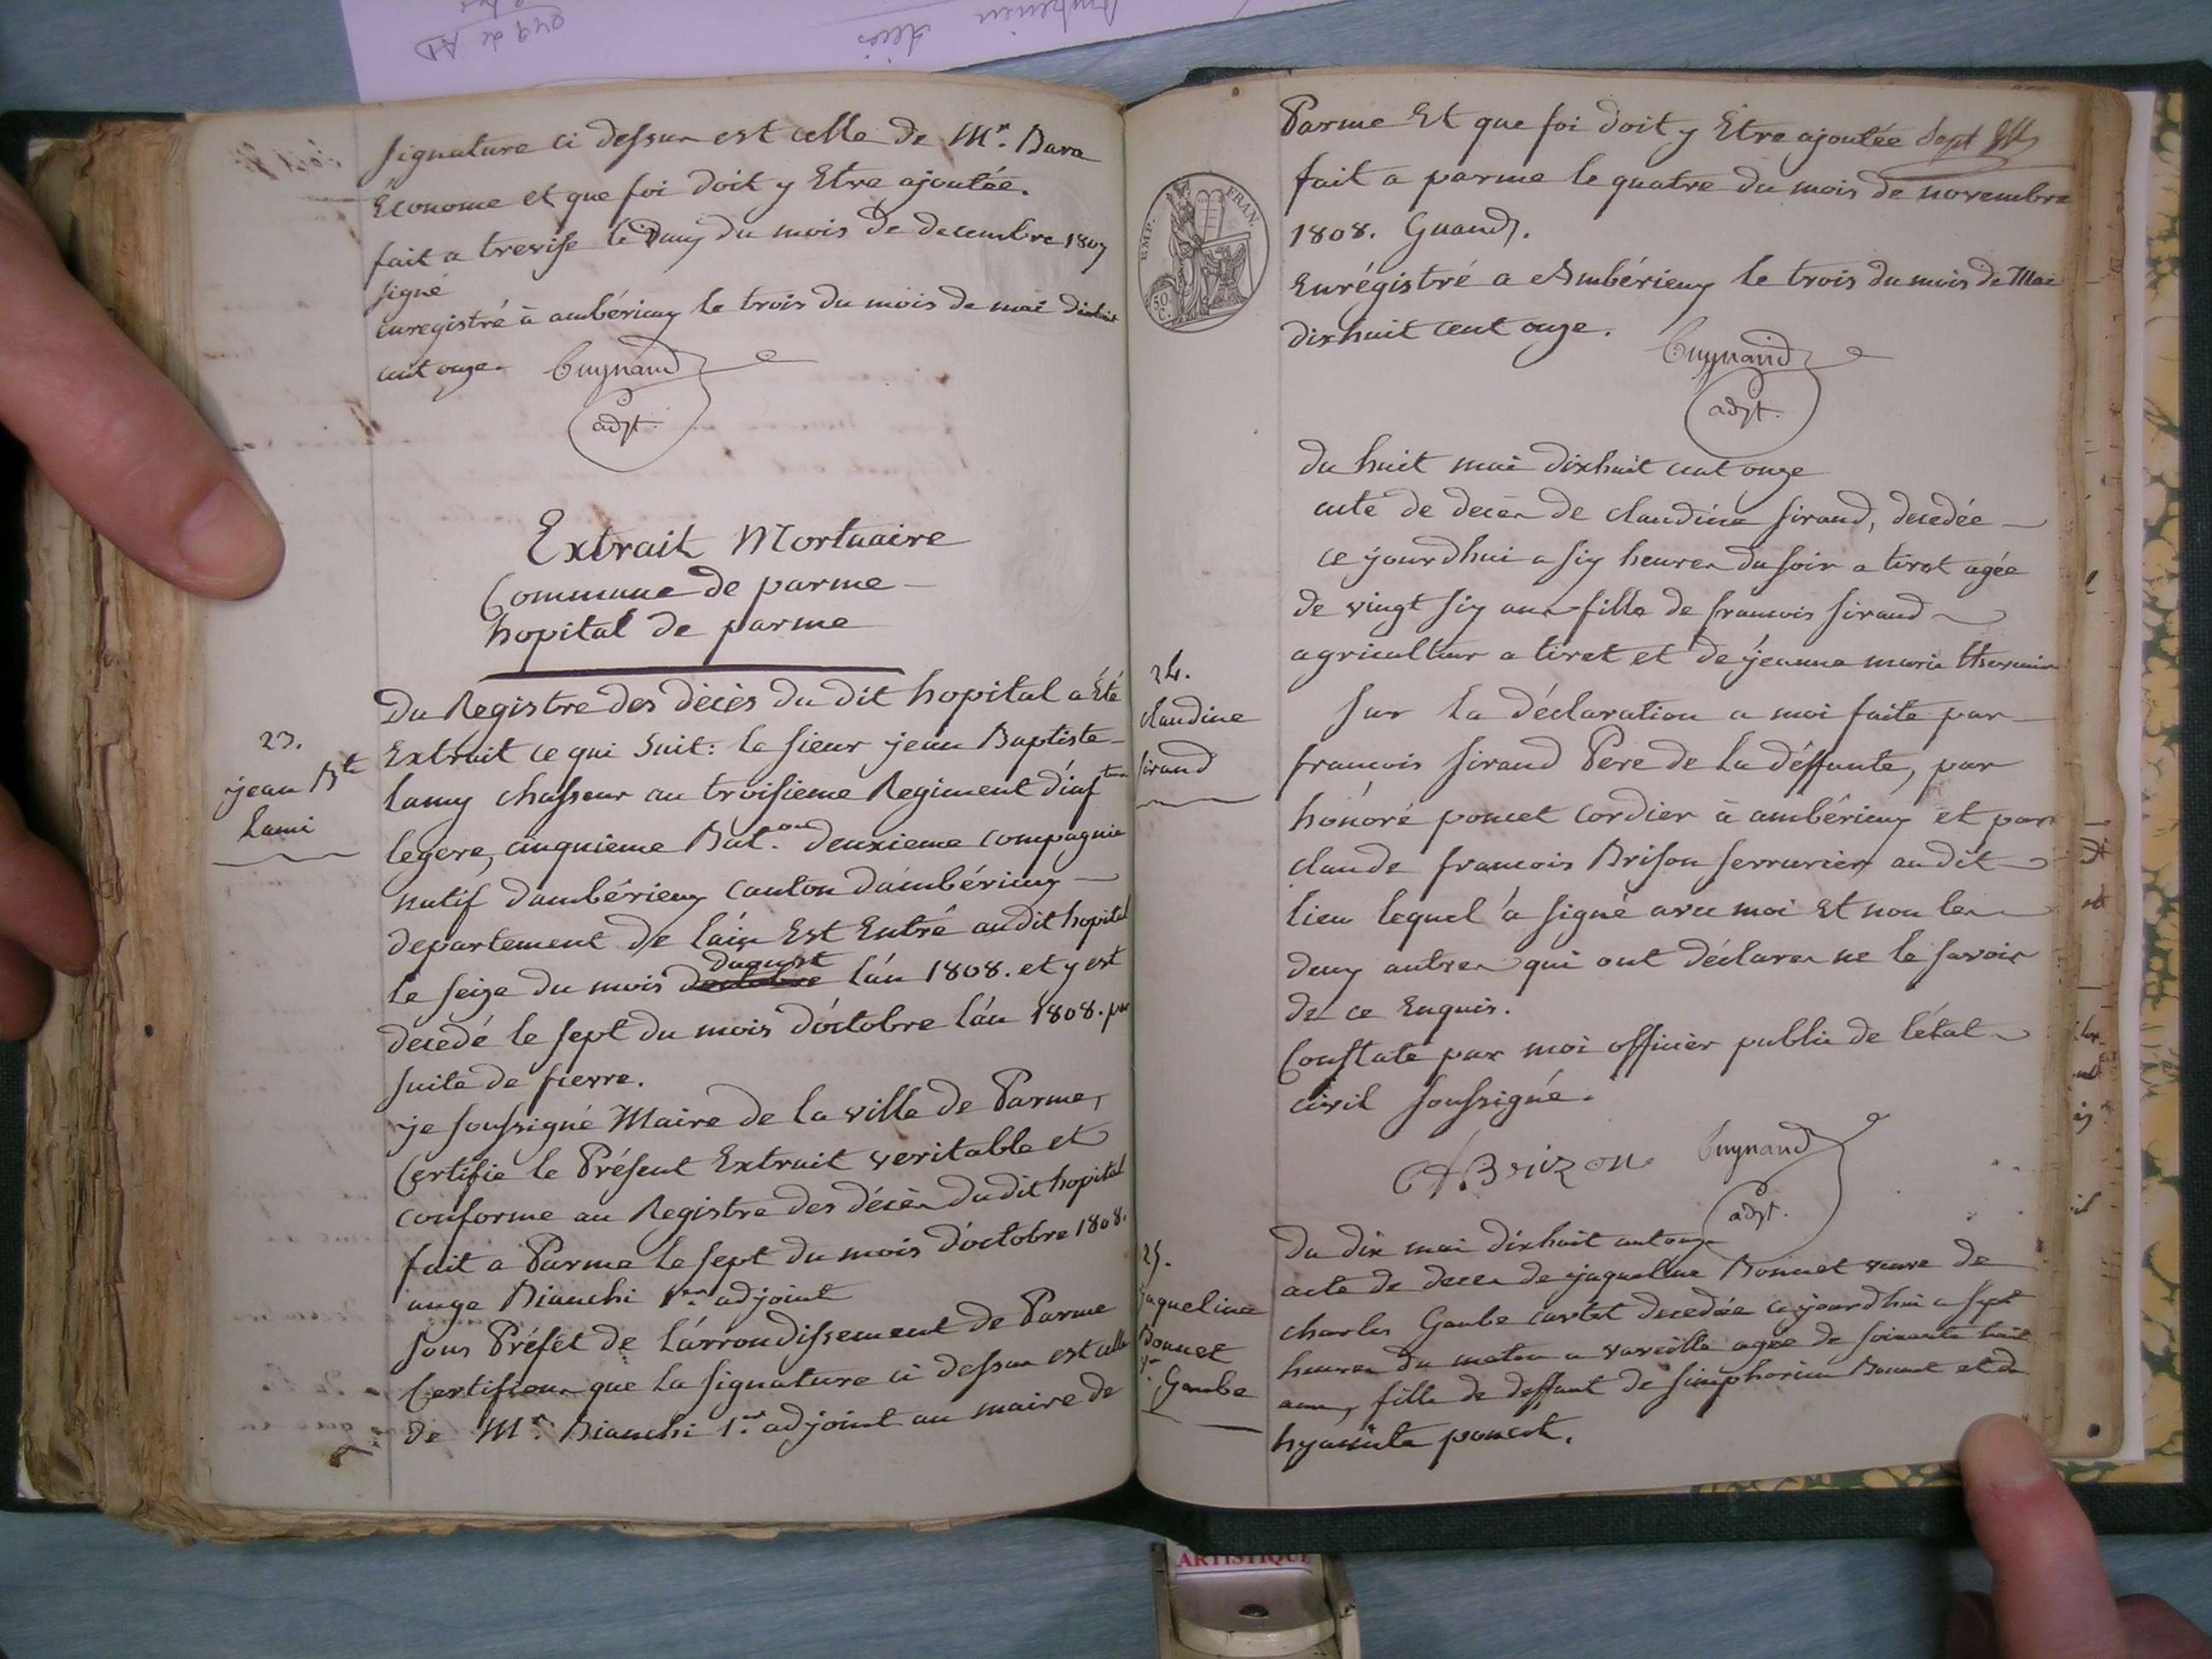 signature ci dessus est celle de Mr. Bara
Économe et que foi doit y Etre ajoutée.
fait a trevise le Deux du mois de decembre 1807
signé
enregistré à ambérieux le trois du mois de mai dixhuit
cent onze. Cuynand
adjt.
Extrait Mortuaire
Commune de parme
hopital de parme
Du Registre des décès du dit hopital a Été
Extrait ce qui Suit: le sieur jean Baptiste
23.
jean Bte
Lami
Lamy chasseur au troisieme Regiment d'inf
legere, cinquieme Bat.on deuxieme compagnie
natif dambérieux canton dambérieux
departement de lain Est Entré audit hopital
le seize du mois daoust l'an 1808. et y est
decedé le sept du mois d'octobre l'an 1808. par
suite de fievre.
je soussigné Maire de la ville de Parme,
Certifie le Présent Extrait veritable et
conforme au Registre des décès du dit hopital
fait a Parme le sept du mois d'octobre 1808.
ange Bianchi 1er adjoint
Sous Préfet de l'arrondissement de Parme
Certifions que la signature ci dessus est celle
de Mr. Bianchi 1er adjoint au maire de
Parme Et que foi doit y Etre ajoutée
fait a parme le quatre du mois de novembre
1808.
EMP. FRAN.
50 C.
Enrégistré a Ambérieux le trois du mois de Mai
dixhuit cent onze.
Cuynand
adjt.
du huit mai dixhuit cent onze
acte de decès de claudine sirand, decedée
ce jourdhui a six heures du soir a tiret agée
de vingt six ans fille de francois sirand
agriculteur a tiret et de jeanne marie
24.
claudine
sirand
sur la déclaration a moi faite par
francois sirand Pere de la déffunte, par
hónoré poncet cordier à ambérieux et par
claude francois Brison serrurier audit
lieu lequel a signé avec moi et non les
deux autres qui ont déclarer ne le savoir
de ce Enquis.
Constaté par moi officier public de l'état
civil soussigné.
Cf. Brizon Cuynand
adjt.
25.
jaqueline
Bonnet
ve
Gaube
du dix mai dixhuit cent onze
acte de decès de jaqueline Bonnet veuve de
charles Gaube cartet decedée ce jourdhui a sept
heures du matin a vareille agée de soixante huit
ans, fille de deffunt de simphorien Bonnet et de
hyacinte poncet.
ARTISTIQUE